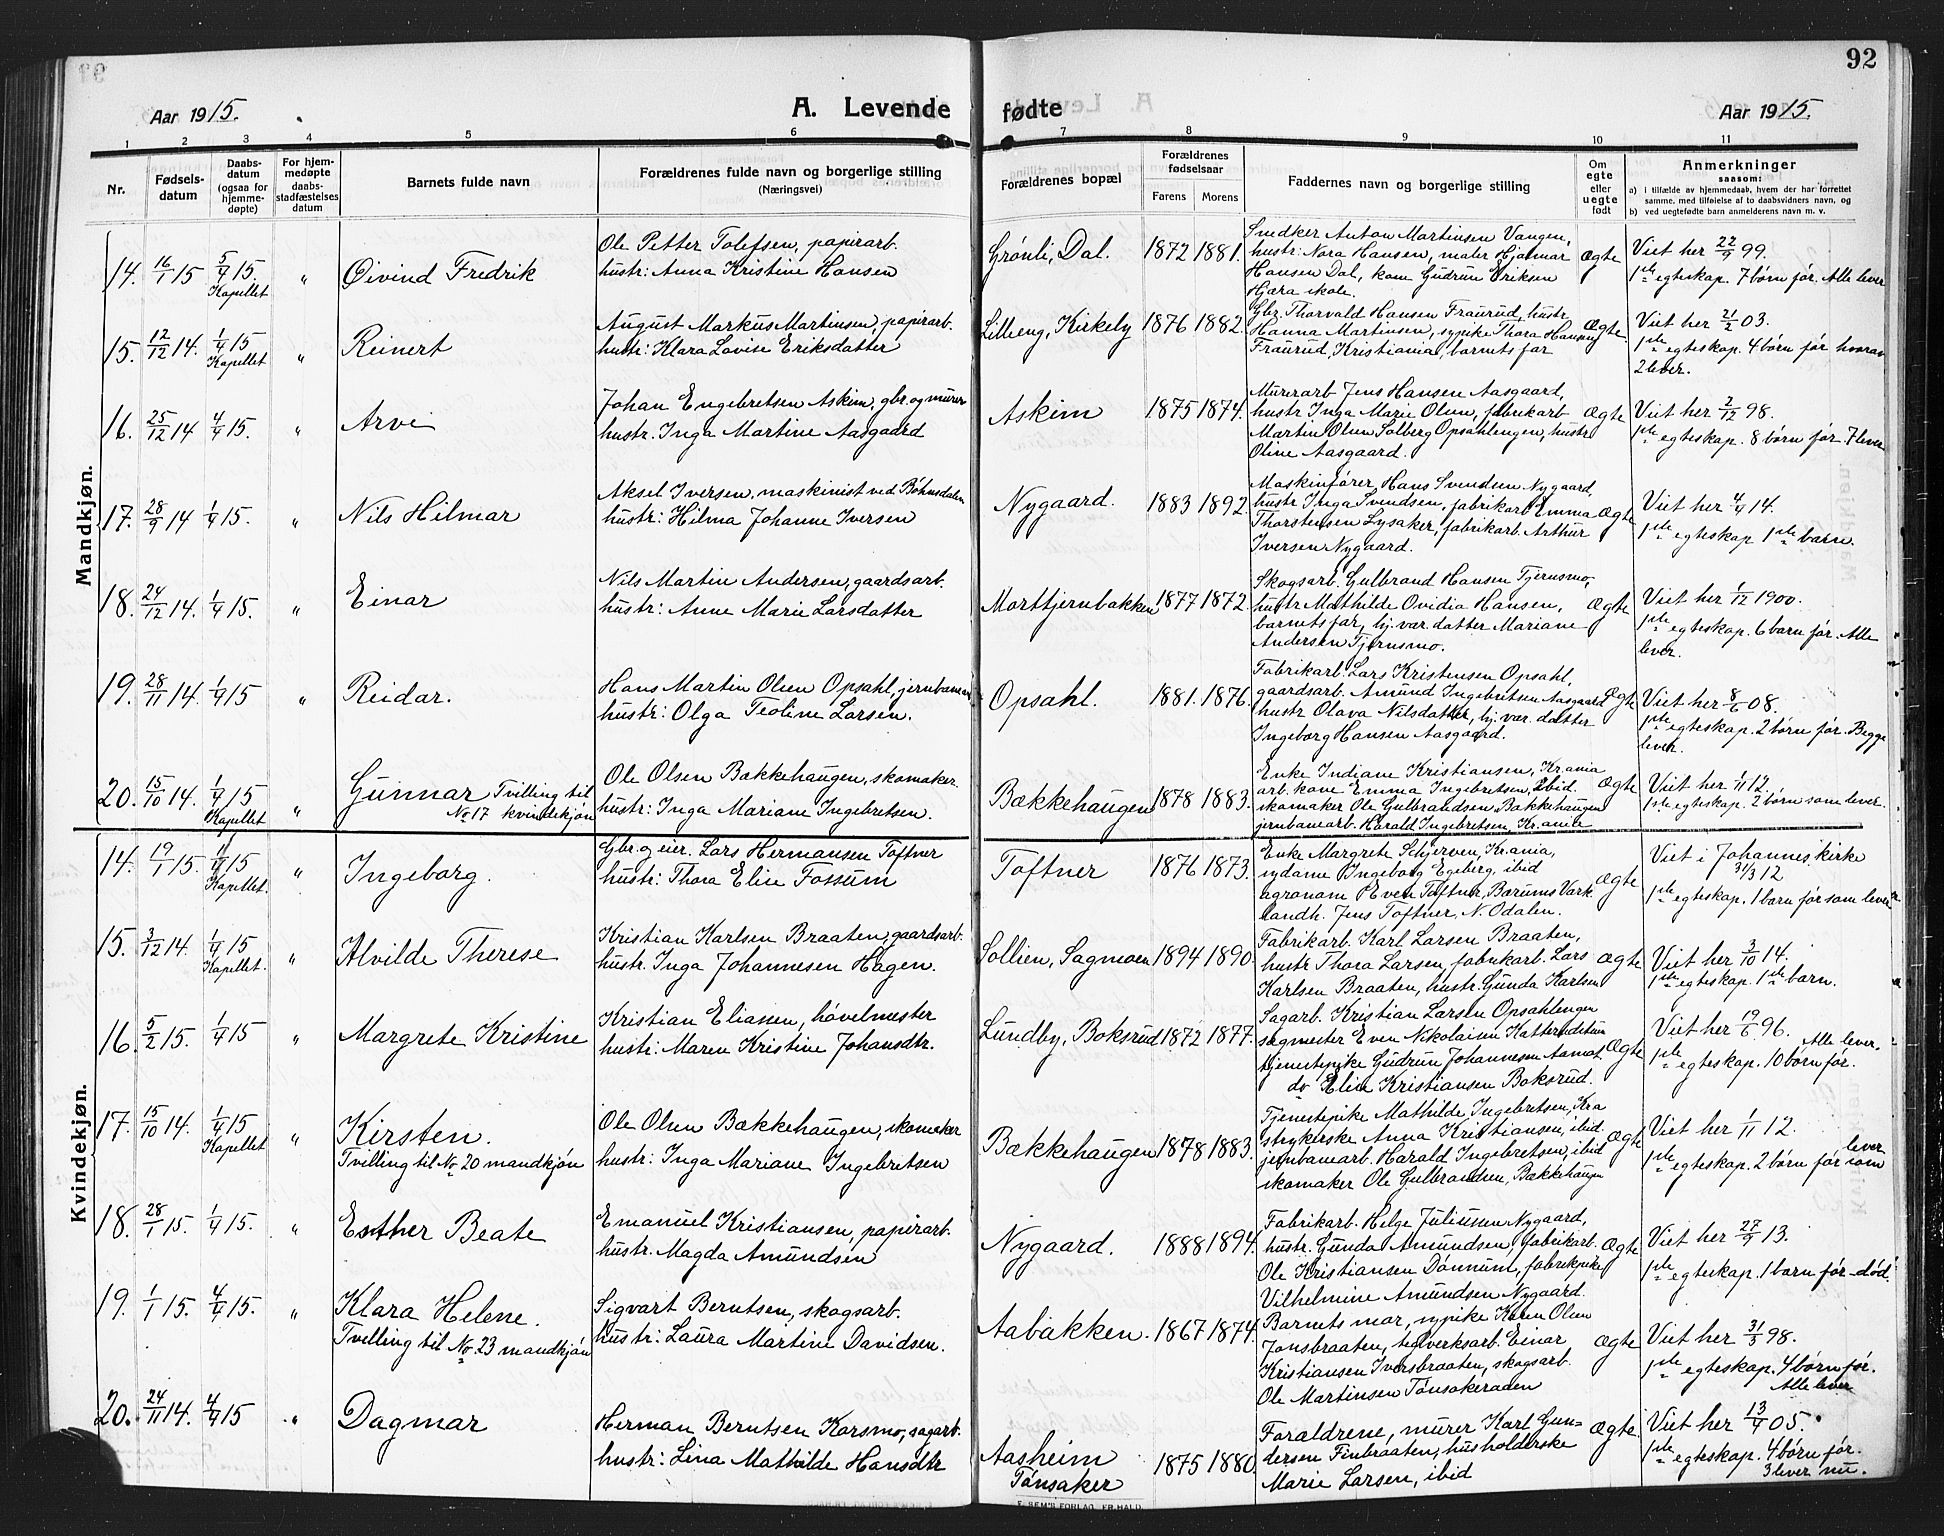 92
Aar 1915.
A. Levende fødte
Aar 1915.
1 2 3 4 5 6 7 8 9 10 11
Nr.
Fødsels-
datum
Daabs-
datum
(ogsaa for
hjemme-
døpte)
For hjem-
medøpte
daabs-
stadfæstelses
datum
Barnets fulde navn
Forældrenes fulde navn og borgerlige stilling
(Næringsvei)
Forældrenes bopæl
Forældrenes
fødselsaar
Farens Morens
Faddernes navn og borgerlige stilling
Om
egte
eller
uegte
født
Anmerkninger
saasom:
a) i tilfælde av hjemmedaab, hvem der har forrettet
samme, med tilføielse af to daabsvidners navn, og
b) ved uegtefødte barn anmelderens navn m. v.
Mandkjøn.
14. 16/1 15 5/4 15. Kapellet " Øivind Fredrik
Ole Petter Tolefsen, papirarb.
hustr: Anna Kristine Hansen
Grønli, Dal. 1872 1881.
Snedker Anton Martinsen Vangen,
hustr: Nora Hansen, maler Hjalmar
Hansen Dal, kone Gudrun Eriksen
Hjæra skole.
Ægte
Viet her 22/9 99.
1ste egteskap. 7 børn før. Alle lever
15. 12/12 14. 1/4 15 Kapellet " Reinert
August Markus Martinsen, papirarb.
hustr: Klara Lovise Eriksdatter
Lilleeng, Kirkeby 1876 1882.
Gbr. Thorvald Hansen Fraurud, hustr
Hanna Martinsen, sypike Thora Hansen
Fraurud, Kristiania, barnets far
Ægte
Viet her 21/2 03.
1ste egteskap. 4 børn før hvorav
2 lever.
16. 25/12 14 4/4 15. " Arve
Johan Engebretsen Askim, gbr. og murer
hustr. Inga Martine Aasgaard
Askim 1875 1874.
Murerarb Jens Hansen Aasgaard,
hustr Inga Marie Olsen, fabrikarb
Martin Olsen Solberg Opsahlengen, hustr
Oline Aasgaard.
Ægte
Viet her 2/12 98.
1ste egteskap. 8 børn før. 7 lever
17. 28/9 14 1/4 15. " Nils Hilmar
Aksel Iversen, maskinist ved Bøhnsdalen
hustr: Hilma Johanne Iversen
Nygaard. 1883 1892
Maskinfører, Hans Svendsen Nygaard,
hustr Inga Svendsen, fabrikarb Emma
Thorstensen Lysaker, fabrikarb. Arthur
Iversen Nygaard.
Ægte
Viet her 4/4 14.
1ste egteskap 1ste barn.
18. 24/12 14. 1/4 15. " Einar
Nils Martin Andersen, gaardsarb.
hustr: Anne Marie Larsdatter
Morttjernbakken 1877 1872.
Skogsarb. Gulbrand Hansen Tjernsmo,
hustr Mathilde Ovidia Hansen,
barnets far, hj. var. datter Mariane
Andersen Tjernsmo.
Ægte
Viet her 1/12 1900.
1ste egteskap. 6 børn før. Alle
lever.
19. 28/11 14. 1/4 15 " Reidar.
Hans Martin Olsen Opsahl, jernbanem
hustr: Olga Teoline Larsen.
Opsahl. 1881. 1876.
Fabrikarb. Lars Kristensen Opsahl,
gaardsarb. Amund Ingebretsen Aasgaard
hustr Olava Nilsdatter, hj. vær. datter
Ingeborg Hansen Aasgaard.
Ægte
Viet her 8/6 08.
1ste egteskap. 2 børn før. Begge
lever.
20. 15/10 14. 1/4 15 Kapellet " Gunnar Tvilling til
No 17 kvindekjøn
Ole Olsen Bækkehaugen, skomaker.
hustr: Inga Mariane Ingebretsen.
Bækkehaugen 1878 1883.
Enke Indiane Kristiansen, Kr.ania
arb. kone Emma Ingebretsen, ibid.
skomaker Ole Gulbrandsen Bækkehaugen
jernbanearb. Harald Ingebretsen, Kr.ania
Ægte
Viet her 1/11 12.
1ste egteskap. 2 børn som lever.
Kvindekjøn.
14. 19/1 15. 1/4 15 Kapellet. " Ingeborg.
Gbr. og eier. Lars Hermansen Toftner
hustr: Thora Elise Fossum
Toftner 1876 1873.
Enke Margrete Schjerven, Kr.ania,
sydame Ingeborg Egeberg, ibid
agronom Even Toftner, Bærums Værk
landh. Jens Toftner, N. Odalen.
Ægte
Viet i Johannes kirke
31/3 12
1ste egteskap. 1 barn før som lever
15. 3/12 14. 1/4 15 Kapellet. " Alvilde Therese
Kristian Karlsen Braaten, gaardsarb.
hustr. Inga Johannesen Hagen.
Sollien, Sagmoen 1894 1890.
Fabrikarb. Karl Larsen Braaten,
hustr Thora Larsen, fabrikarb. Lars
Karlsen Braaten, hustr. Gunda Karlsen
Ægte
Viet her 3/10 14.
1ste egteskap. 1ste barn.
16. 5/2 15. 1/4 15 " Margrete Kristine
Kristian Eliassen, høvelmester
hustr: Maren Kristine Johansdtr.
Lundby, Boksrud 1872 1877.
Sagarb. Kristian Larsen Opsahlengen
sagmester Even Nikolaisen
tjenestepike Gudrun Johannesen
do Elise Kristiansen Boksrud.
Ægte
Viet her 19/6 96. Alle lever.
1ste egteskap. 10 børn før.
17. 15/10 14. 1/4 15 Kapellet " Kirsten.
Tvilling til No 20 mandkjøn
Ole Olsen Bækkehaugen, skomaker
hustr: Inga Mariane Ingebritsen
Bækkehaugen 1878 1883.
Tjenestepike Mathilde Ingebretsen, Kra
strykerske Anna Kristiansen, ibid.
jernbanearb. Harald Ingebretsen, ibid
skomaker Ole Gulbrandsen, Bækkehaugen
Ægte
Viet her 1/11 12.
1ste egteskap. 2 børn før som lever
18. 28/1 15. 1/4 15. " Esther Beate
Emanuel Kristiansen, papirarb.
hustr. Magda Amundsen
Nygaard. 1888 1894.
Fabrikarb. Helge Juliussen Nygaard,
hustr. Gunda Amundsen, fabrikarb.
Ole Kristiansen Dønnum, fabrikpike
Vilhelmine Amundsen Nygaard.
Ægte
Viet her 27/9 13.
1ste egteskap. 1 barn før - død.
19. 1/1 15. 4/4 15. " Klara Helene.
Tvilling til No 23 mandkjøn
Sigvart Berntsen, skogsarb.
hustr: Laura Martine Davidsen.
Aabakken. 1867 1874.
Barnets mor, sypike Karen Olsen
Jonsbraaten, teglverksarb. Einar
Kristiansen Iversbraaten, skogsarb.
Ole Martinsen Tønsakeraden
Ægte
Viet her 31/3 98.
1ste egteskap. 4 børn før.
Alle lever
20. 24/11 14. 4/4 15 " Dagmar
Herman Berntsen Korsmo, sagarb.
hustr: Lina Mathilde Hansdtr
Aasheim
Tønsaker 1875 1880.
Forældrene, murer Karl Gun=
dersen Finbraaten, husholderske
Marie Larsen, ibid
Ægte
Viet her 13/4 05.
1ste egteskap. 4 børn før.
3 lever nu.
E. SEM'S FORLAG, FR.HALD.